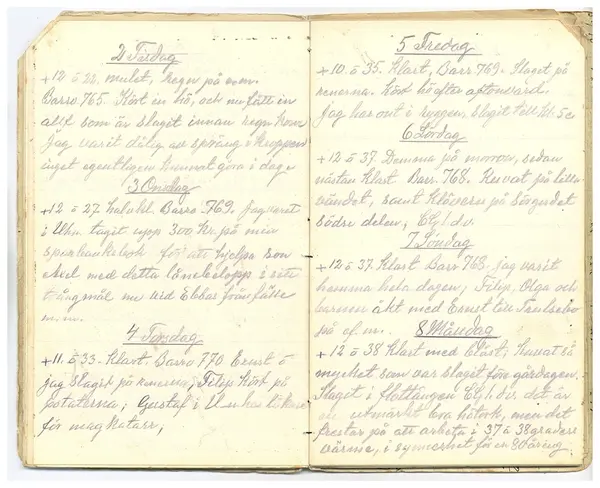 2 Tisdag
+12 á 22. mulet, regn på e.m.
Barro 765. Kört in hö, och nu fått in
allt som är slagit innan regn kom
Jag varit dålig av språng i kroppen
inget egentligen kunnat göra i dag.
3 Onsdag
+12 á 27. halvkl. Barro 769. Jag varit
i Uhu. tagit upp 300 Kr. på min
sparbanksbok för att hjelpa son
Axel med detta lånebelopp i sitt
trångmål nu vid Ebbas frånfälle
m.m.
4 Torsdag
+11. á 33. Klart. Barro 770 Ernst å
jag slagit på renerna, Filip kört på
potaterna, Gustaf i
för magkatarr,
5 Fredag
+10 á 35. Klart, Barr. 769. Slaget på
renerna. Kört hö efter aftonvard.
Jag har ont i ryggen. slagit till kl. 5 e
6 Lördag
+12 á 37. Dimma på morron, sedan
nästan klart Barr. 768. Kuvat på lilla
vändet, samt klövern på Sörgudet
södre delen, Elg. l. dv.
7 Söndag
+12 á 37. Klart Barr 768. jag varit
hemma hela dagen, Filip, Olga och
barnen åkt med Ernst till
på ef.m.
8 Måndag
+12 á 38 Klart med blåst, Kuvat så
mycket som var slaget före gårdagen.
Slaget i Slottängen Elg. l. dv. det är
ett utmärkt bra hötork, men det
frestar på att arbeta i 37 á 38 graders
värme, i synnerhet för en 80 åring